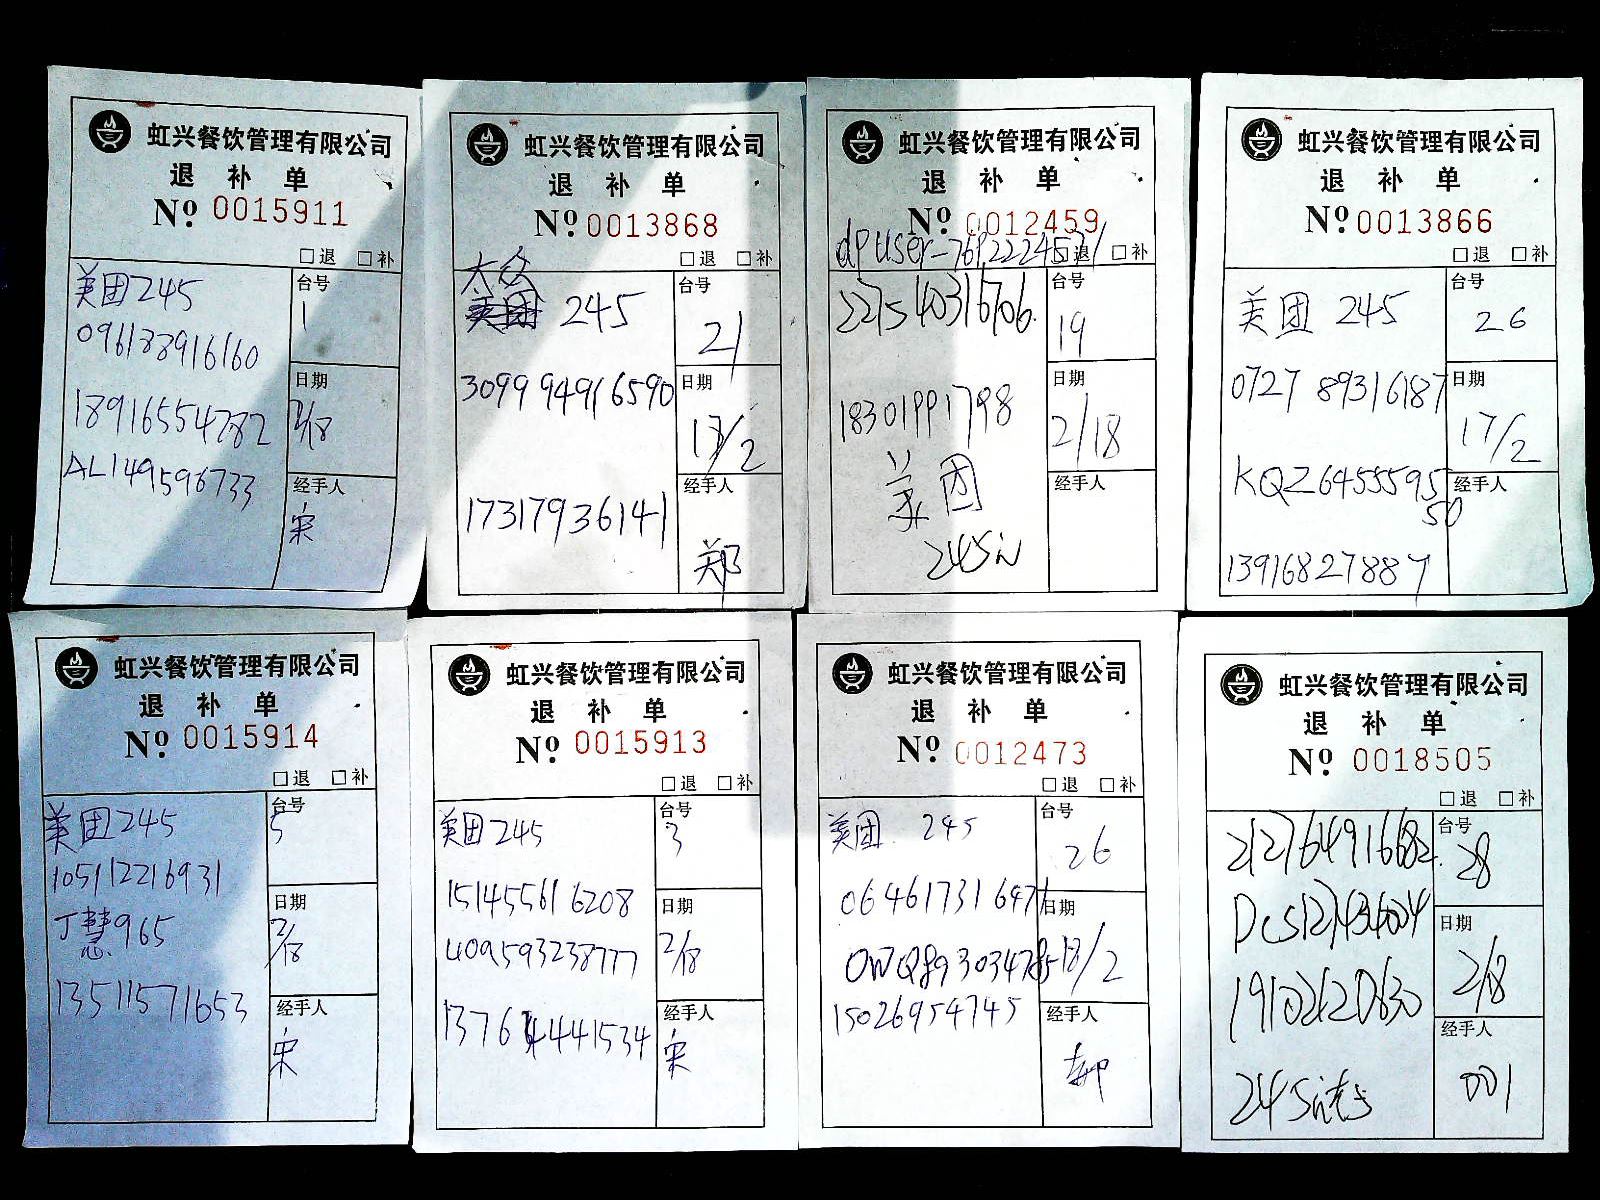 虹兴餐饮管理有限公司
退 补 单
Nº 0015911
□退 □补
美团245
096188916160
18916554782
AL149596733
台号
1
日期
2/18
经手人
宋
虹兴餐饮管理有限公司
退 补 单
Nº 0013868
□退 □补
大众
245
3099 94916590
17317936141
台号
21
日期
17/2
经手人
郑
虹兴餐饮管理有限公司
退 补 单
Nº 0012459
□退 □补
227540316706
18301991798
美团
245
台号
19
日期
2/18
经手人
虹兴餐饮管理有限公司
退 补 单
Nº 0013866
□退 □补
美团 245
0727 89316187
KQZ64555595
50
13916827887
台号
26
日期
17/2
经手人
虹兴餐饮管理有限公司
退 补 单
Nº 0015914
□退 □补
美团245
105112216931
丁慧965
13511571653
台号
5
日期
2/18
经手人
宋
虹兴餐饮管理有限公司
退 补 单
Nº 0015913
□退 □补
美团245
151455616208
409593238777
13764441534
台号
3
日期
2/18
经手人
宋
虹兴餐饮管理有限公司
退 补 单
Nº 0012473
□退 □补
美团 245
15026954745
台号
26
日期
18/2
经手人
虹兴餐饮管理有限公司
退 补 单
Nº 0018505
□退 □补
212764916682
245
台号
28
日期
2/18
经手人
001